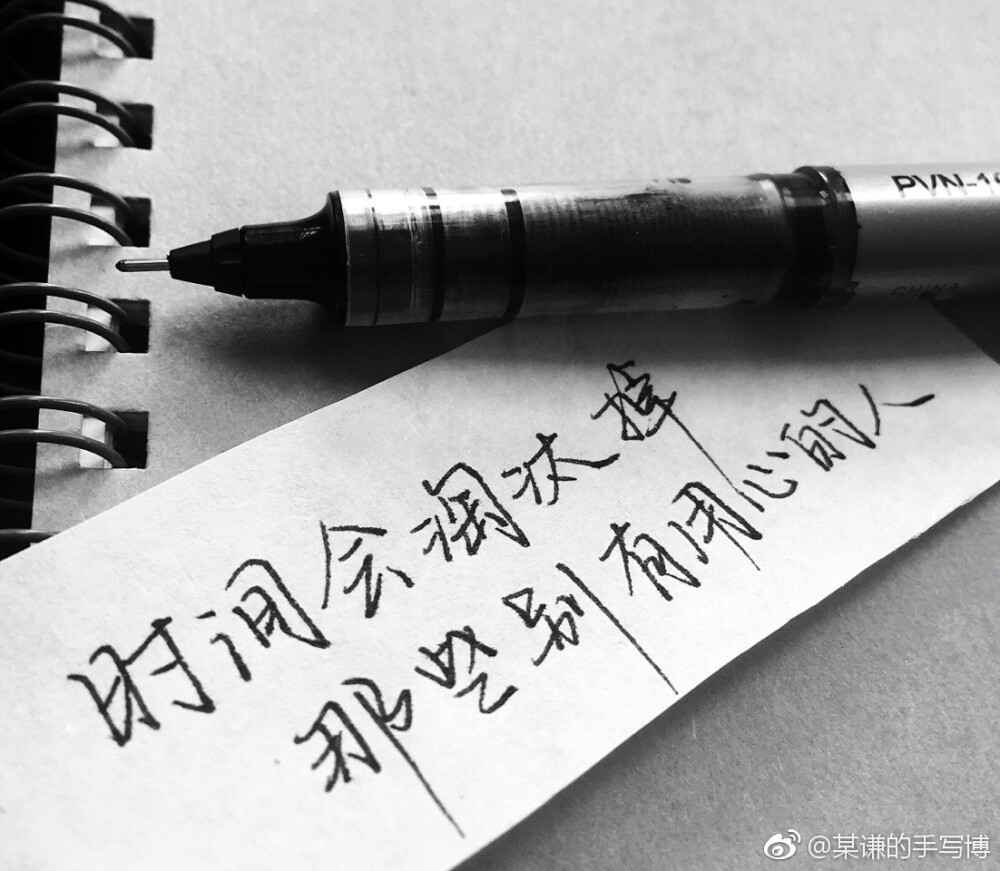 PVN-16
CHINA
时间会淘汰掉
那些别有用心的人
@某谦的手写博